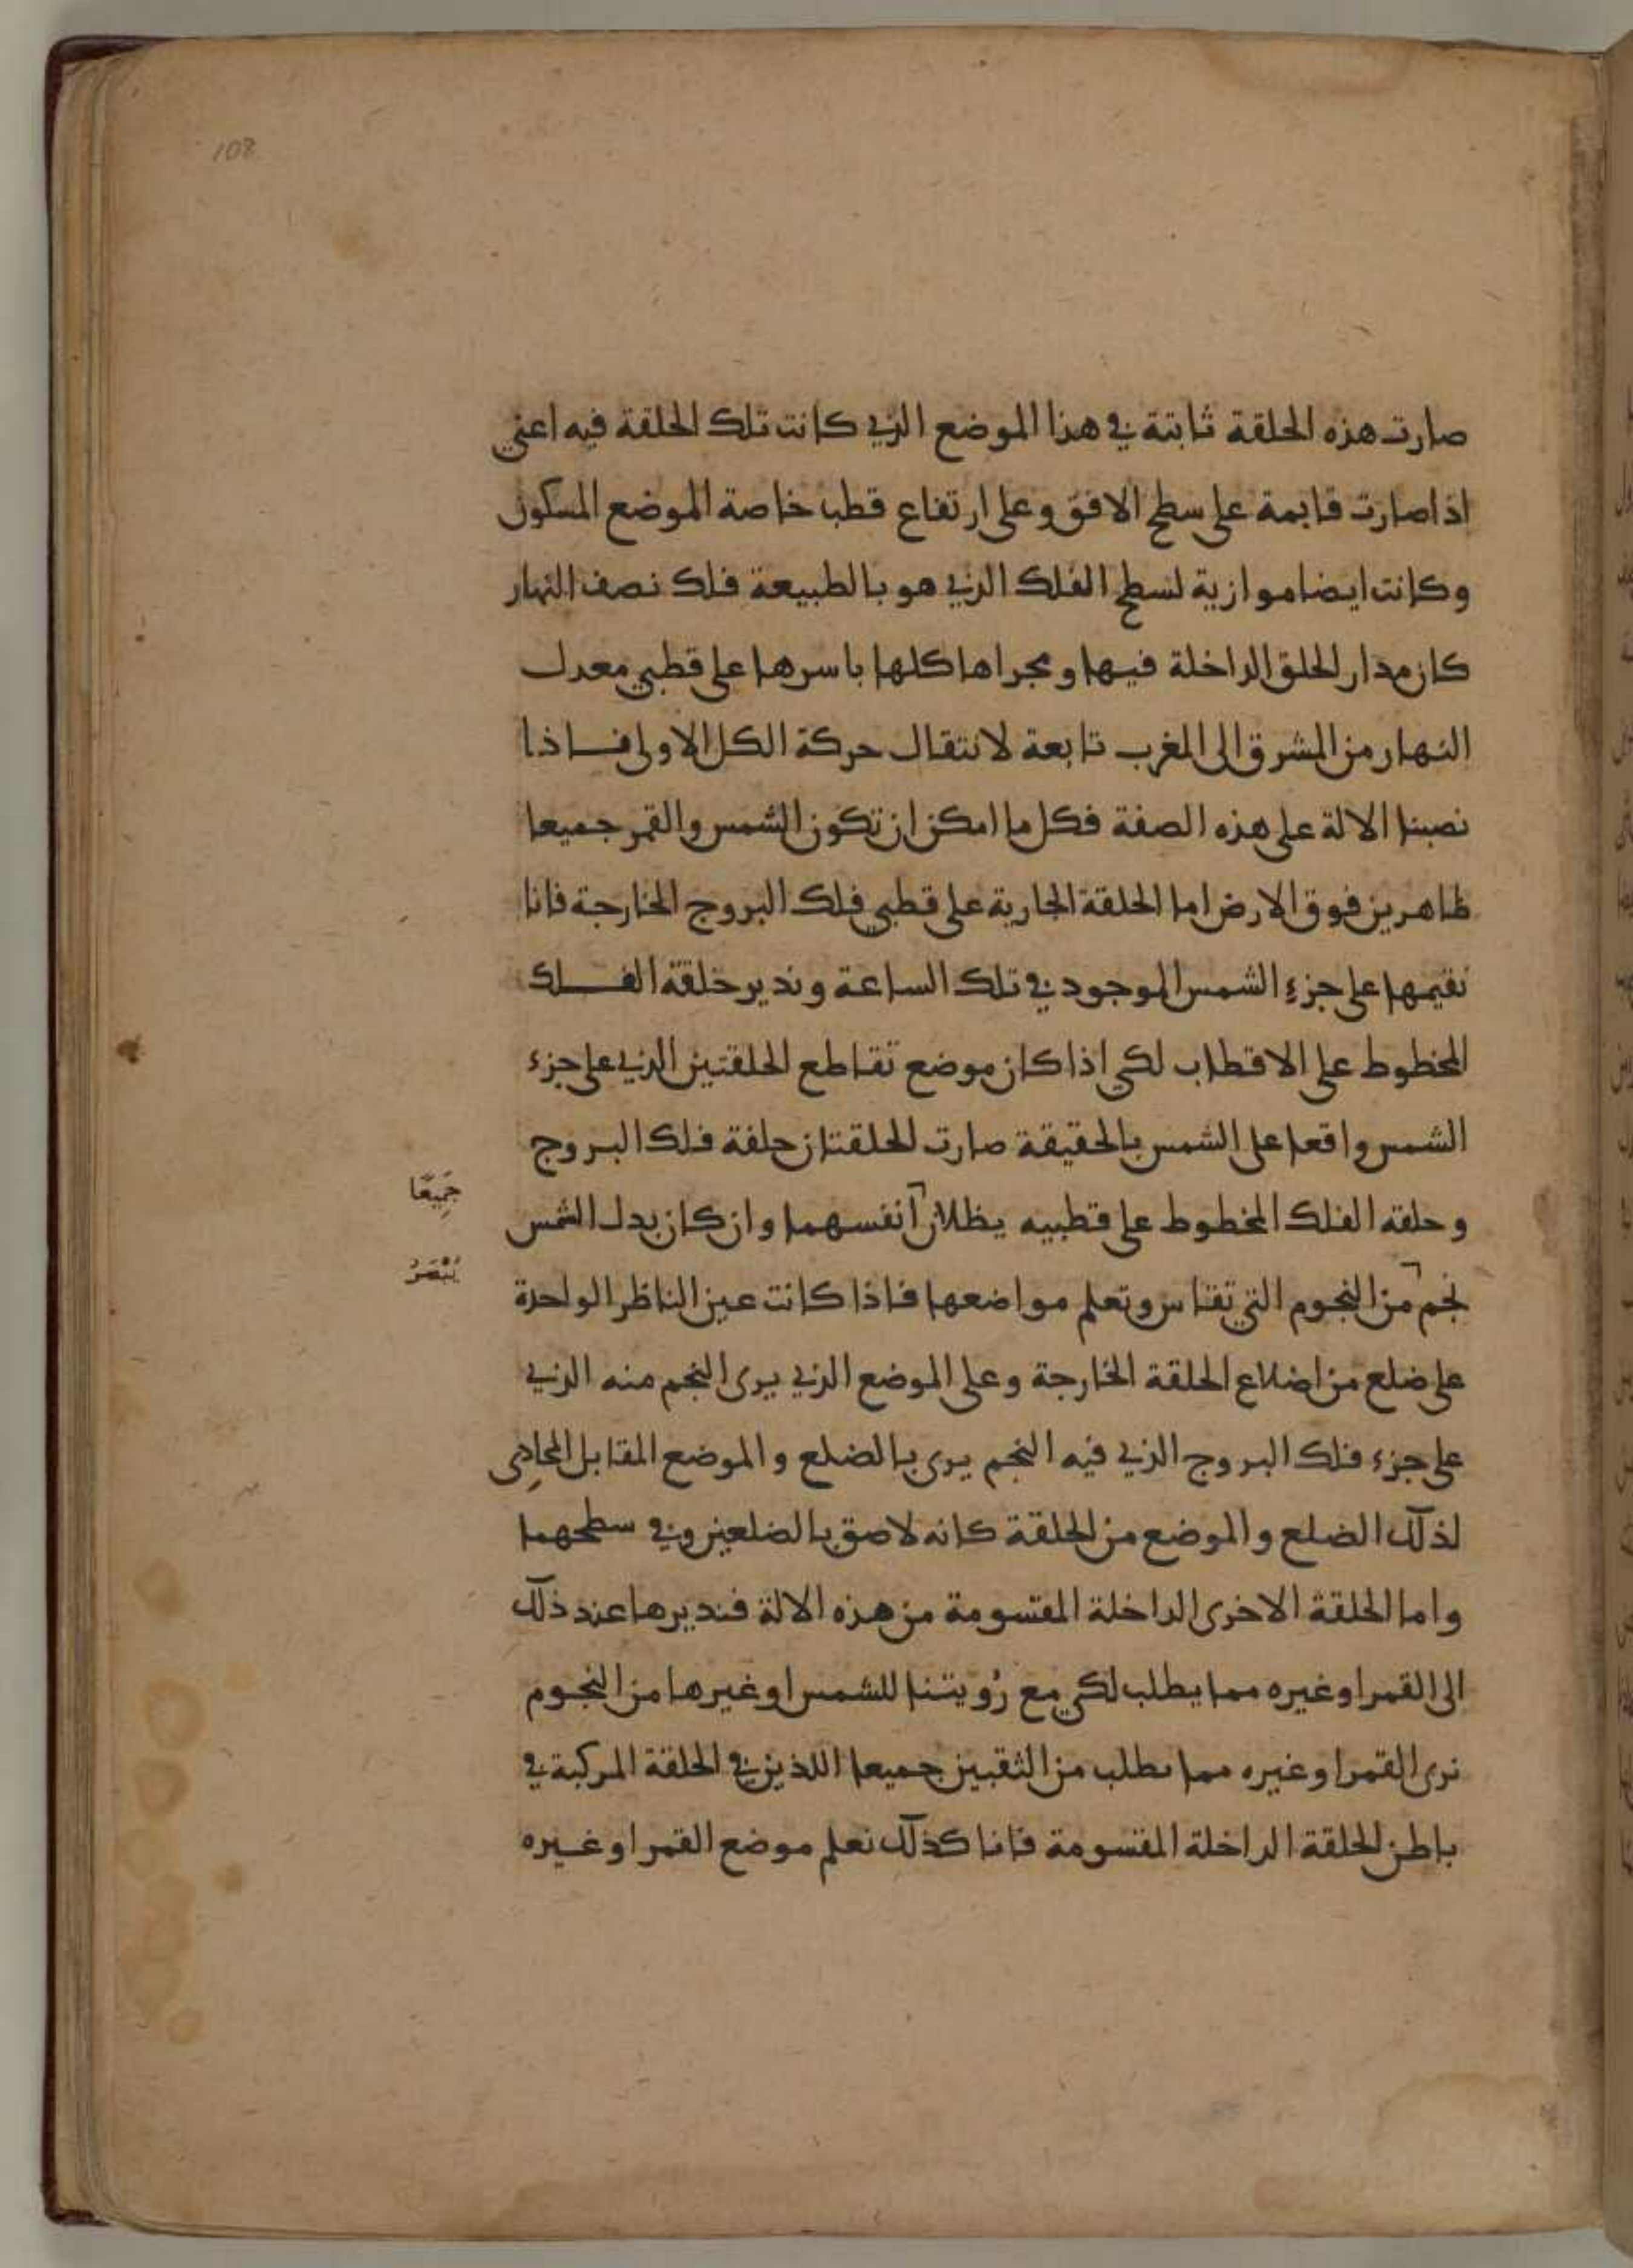 108
صارت هذه الحلقة ثابتة في هذا الموضع الذي كانت تلك الحلقة فيه اعني
اذا صارت قايمة على سطح الافق وعلى ارتفاع قطب خاصة الموضع المسكون
وكانت ايضا موازية لسطح الفلك الذي هو بالطبيعة فلك نصف النهار
كان مدار الحلق الداخلة فيها ومجراها كلها باسرها على قطبي معدل
النهار من المشرق الى المغرب تابعة لانتقال حركة الكل الاولى فاذا
نصبنا الالة على هذه الصفة فكل ما امكن ان تكون الشمس والقمر جميعا
ظاهرين فوق الارض اما الحلقة الجارية على قطبي فلك البروج الخارجة فانا
نقيمها على جزء الشمس الموجود في تلك الساعة وندير حلقة الفلك
المخطوط على الاقطاب لكي اذا كان موضع تقاطع الحلقتين الذي على جزء
الشمس واقعا على الشمس بالحقيقة صارت الحلقتان حلقة فلك البروج
وحلقه الفلك المخطوط على قطبيه يظلان انفسهما وان كان بدل الشمس
جَمِيعًا
نجم من النجوم التي تقاس وتعلم مواضعها فاذا كانت عين الناظر الواحدة
تُبْصَرُ
على ضلع من اضلاع الحلقة الخارجة وعلى الموضع الذي يرى النجم منه الذي
على جزء فلك البروج الذي فيه النجم يرى بالضلع والموضع المقابل المحاذِى
لذلك الضلع والموضع من الحلقة كانه لاصق بالضلعين وفي سطحهما
واما الحلقة الاخرى الداخلة المقسومة من هذه الالة فنديرها عند ذلك
الى القمر او غيره مما يطلب لكي مع رُويتنا للشمس او غيرها من النجوم
نرى القمر او غيره مما يطلب من الثقبين جميعا اللذين في الحلقة المركبة في
باطن الحلقة الداخلة المقسومة فانا كذلك نعلم موضع القمر او غيره